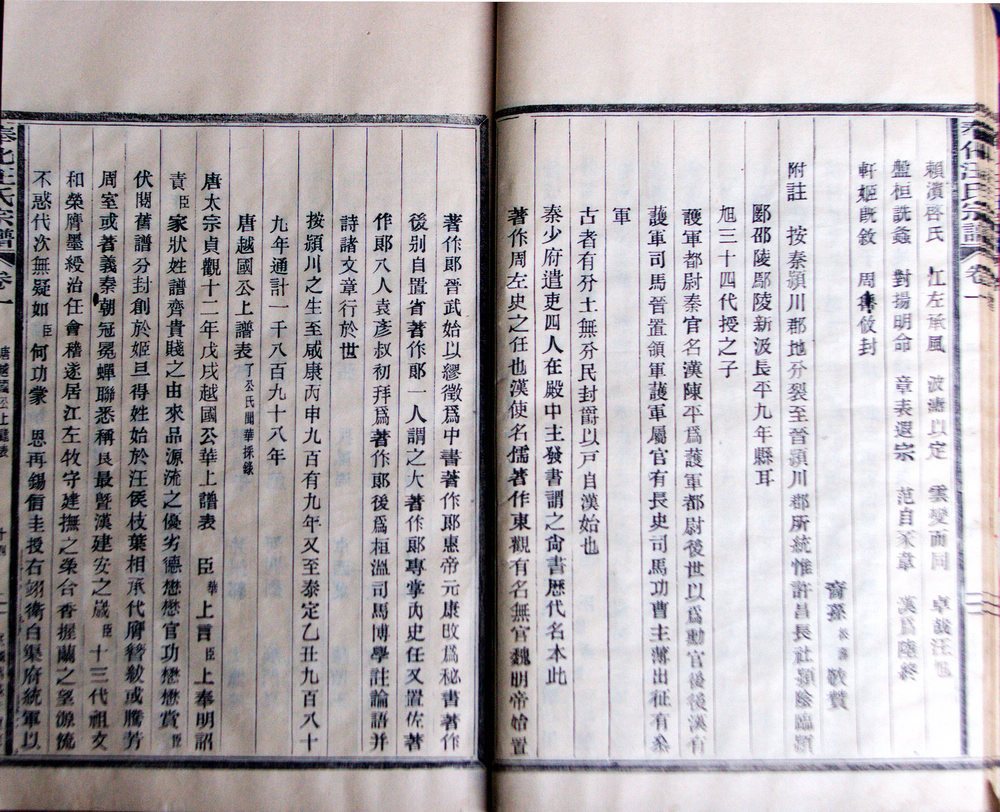 奉化汪氏宗譜 卷一
賴瀆啓氏 江左承風 波濤以定 雲變而同 卓哉汪也
盤桓詵螽 對揚明命 章表還宗 范自豕韋 漢爲隆終
軒姬旣敘 周書攸封
裔孫 敬贊
附註 按秦潁川郡地分裂至晉潁川郡所統惟許昌長社潁陰臨潁
郾邵陵鄢陵新汲長平九年縣耳
旭三十四代授之子
護軍都尉秦官名漢陳平爲護軍都尉後世以爲勳官後後漢有
護軍司馬晉置領軍護軍屬官有長史司馬功曹主薄出征有叅
軍
古者有分土無分民封爵以戸自漢始也
秦少府遣吏四人在殿中主發書謂之尙書歷代名本此
著作周左史之任也漢使名儒著作東觀有名無官魏明帝始置
著作郎晉武始以繆徵爲中書著作郎惠帝元康改爲秘書著作
後别自置省著作郎一人謂之大著作郎專掌內史任又置佐著
作郎八人袁彥叔初拜爲著作郎後爲桓溫司馬博學註論語并
詩諸文章行於世
按潁川之生至咸康丙申九百有九年又至泰定乙丑九百八十
九年通計一千八百九十八年
唐越國公上譜表 丁公氏聞華採錄
唐太宗貞觀十二年戊戌越國公華上譜表 臣華上言臣上奉明詔
責臣家狀姓譜齊貴賤之由來品源流之優劣德懋懋官功懋懋賞臣
伏閱舊譜分封創於姬旦得姓始於汪侯枝葉相承代膺簪紱或騰芳
周室或著義秦朝冠冕蟬聯悉稱良最曁漢建安之歲臣十三代祖文
和榮膺墨綬治任會稽遂居江左牧守建撫之榮台香握蘭之望源流
不惑代次無疑如臣何功蒙 恩再錫信圭授右翊衛白渠府統軍以
奉化汪氏宗譜 卷一
唐越國公上譜表